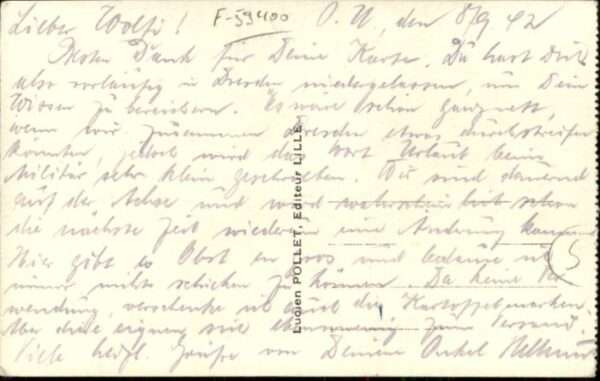 Lieber Wolfi! F-59400 O. U., den 8/9 42
Vielen Dank für Deine Karte. Du hast Dich
also vorläufig in Dresden niedergelassen, um Dein
Wissen zu bereichern. Es wäre schon ganz nett,
wenn wir zusammen Dresden etwas durchstreifen
könnten, jedoch wird das Wort Urlaub beim
Militär sehr klein geschrieben. Wir sind dauernd
auf der Achse und wird wahrscheinlich schon
die nächste Zeit wieder eine Änderung kommen
Hier gibt es Obst en gros und bedaure ich
immer nichts schicken zu können. Da keine Ver
wendung, verschenke ich auch die Kartoffelmarken.
Aber diese eignen sie zum Versand.
Viele herzl. Grüße von Deinem Onkel Hellmut
Lucien POLLET, Editeur LILLE